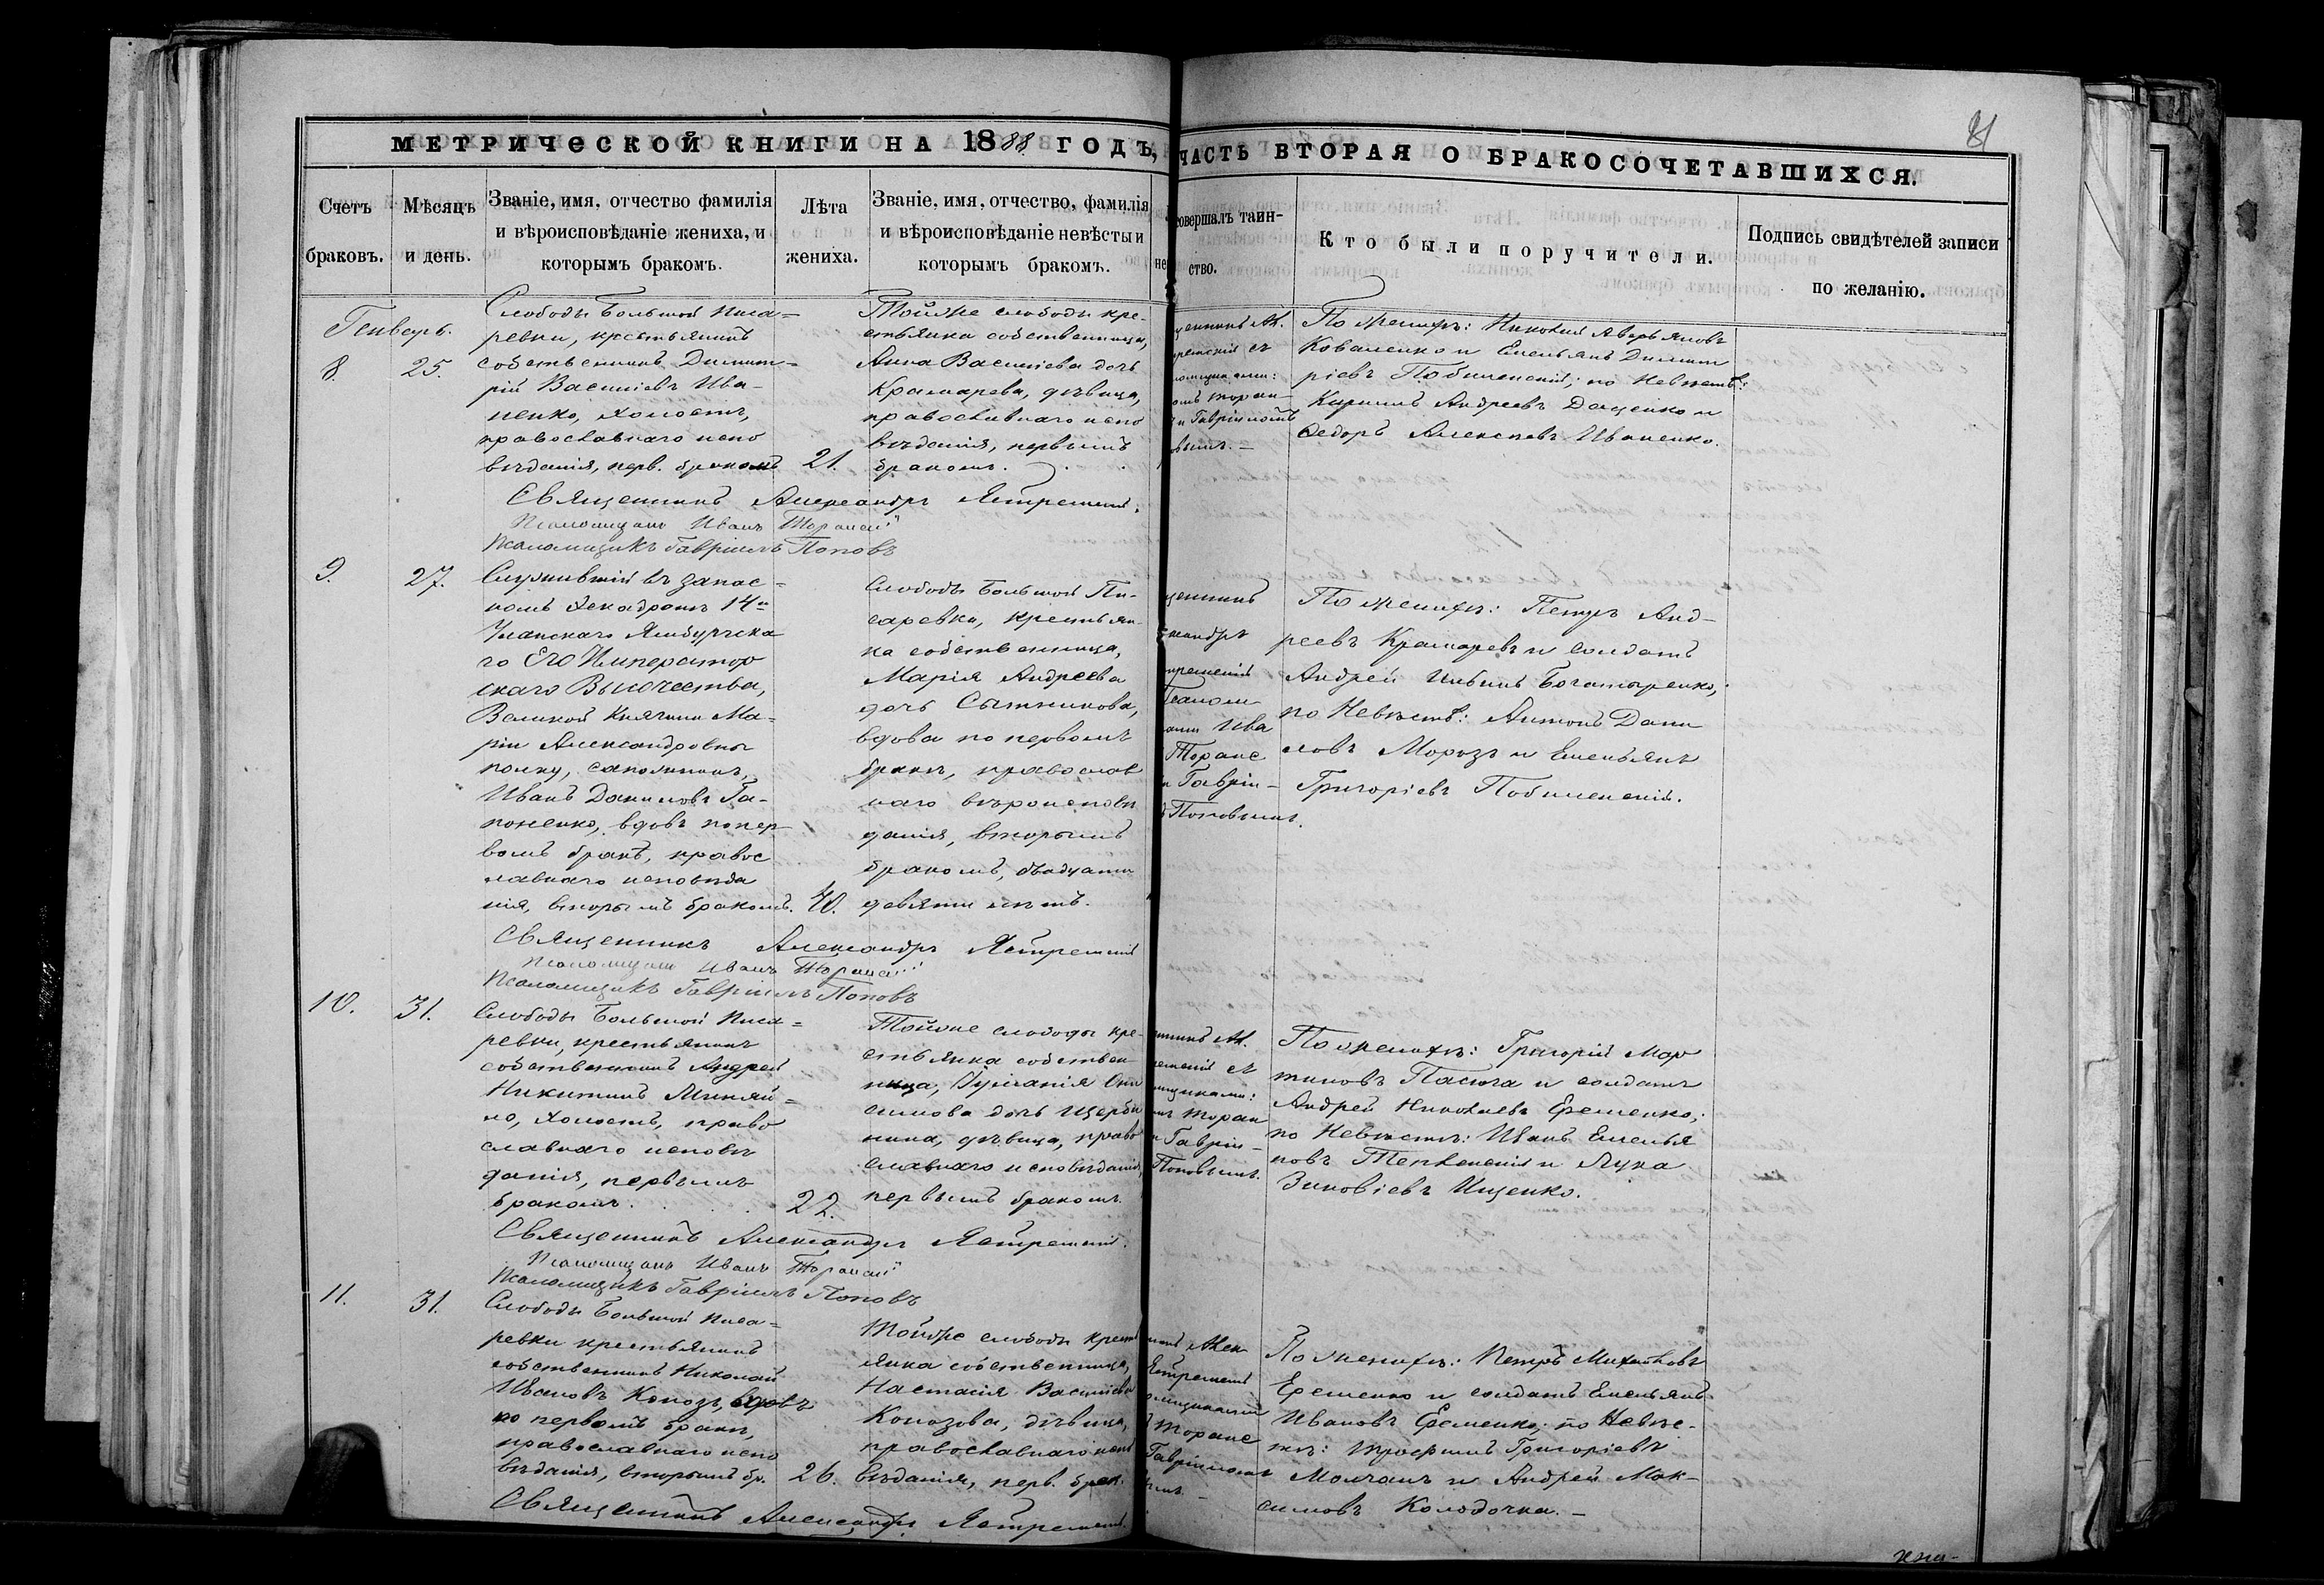 МЕТРИЧЕСКОЙ КНИГИ НА 1888 ГОДЪ,
ЧАСТЬ ВТОРАЯ О БРАКОСОЧЕТАВШИХСЯ.
81
Счетъ
браковъ.
Мѣсяцъ
и день.
Званіе, имя, отчество фамилія
и вѣроисповѣданіе жениха, и
которымъ бракомъ.
Лѣта
жениха.
Званіе, имя, отчество, фамилія
и вѣроисповѣданіе невѣсты и
которымъ бракомъ.
не
совершалъ таин-
ство.
Кто были поручители.
Подпись свидѣтелей записи
по желанію.
Генварь.
8.
25.
Слободы Большой Писа=
ревки, крестьянинъ
собственникъ Димит=
рій Василіевъ Ива-
ненко, холостъ,
православнаго испо
вѣданія, перв. бракомъ
21.
Тойже слободы кре-
стьянка собственница,
Анна Василіева дочь
Крамарева, дѣвица,
православнаго испо
вѣданія, первымъ
бракомъ.
По женихѣ: Николай Аверьяновъ
Коваленко и Емельянъ Димит
ріевъ Побиленскій; по невѣстѣ:
Кириллъ Андреевъ Даценко и
Ѳедоръ Алексѣевъ Иваненко.
Священникъ Александръ Ястремскій.
Псаломщикъ Иванъ Торанскій
Псаломщикъ Гавріилъ Поповъ
9.
27.
Служившій въ запас=
номъ эскадронѣ 14го
Уланскаго Ямбургска
го Его Император
скаго Высочества,
Великой Княжны Ма-
ріи Александровны
полку, сапожникъ,
Иванъ Даниловъ Га-
поненко, вдовъ по пер
вомъ бракѣ, правос
лавнаго исповѣда
нія, вторымъ бракомъ.
40.
Слободы Большой Пи-
саревки, крестьян-
ка собственница,
Марія Андреева
дочь Сытникова,
вдова по первомъ
бракѣ, православ
наго вѣроисповѣ
данія, вторымъ
бракомъ, двадцати
девяти лѣтъ.
По женихѣ: Петръ Анд-
реевъ Крамаревъ и солдатъ
Андрей Ильинъ Богатыренко;
по невѣстѣ: Антонъ Дани
ловъ Морозъ и Емельянъ
Григоріевъ Побиленскій.
Священникъ Александръ Ястремскій
Псаломщикъ Иванъ Торанскій
Псаломщикъ Гавріилъ Поповъ
10.
31.
Слободы Большой Писа=
ревки, крестьянинъ
собственникъ Андрей
Никитинъ Миняй=
ло, холостъ, право
славнаго исповѣ
данія, первымъ
бракомъ.
22.
Тойже слободы кре-
стьянка собствен-
ница, Іуліанія Они
симова дочь Щерби
нина, дѣвица, право
славнаго исповѣданія,
первымъ бракомъ.
По женихѣ: Григорій Мар
тиновъ Пасюга и солдатъ
Андрей Николаевъ Еременко;
по невѣстѣ: Иванъ Емелья
новъ и Лука
Зиновіевъ Ищенко.
Священникъ Александръ Ястремскій.
Псаломщикъ Иванъ Торанскій
Псаломщикъ Гавріилъ Поповъ
11.
31.
Слободы Большой Писа=
ревки крестьянинъ
собственникъ Николай
Ивановъ вдовъ
по первомъ бракѣ,
православнаго испо
вѣданія, вторымъ бр.
26.
Тойже слободы крест
янка собственница,
Настасія Василіева
дѣвица,
православнаго испо
вѣданія, перв. брак.
По женихѣ: Петръ Михайловъ
Еременко и солдатъ Емельянъ
Ивановъ Еременко; по невѣс-
тѣ: Трофимъ Григоріевъ
Молчанъ и Андрей Мак-
симовъ Колодочка.
Священникъ Александръ Ястремскій.